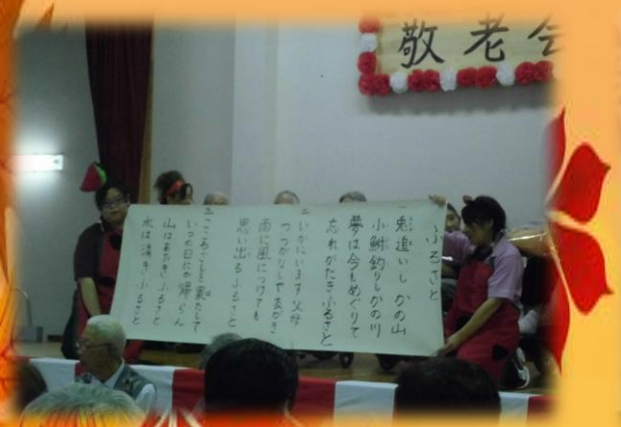 敬老会
ふるさと
一 兎追いし かの山
小鮒釣りしかの川
夢は今もめぐりて
忘れがたきふるさと
二 いかにいます 父母
つつがなしや友がき
雨に風につけても
思い出る ふるさと
三 こころざしを果たして
いつの日にか帰らん
山はあおきふるさと
水は清きふるさと